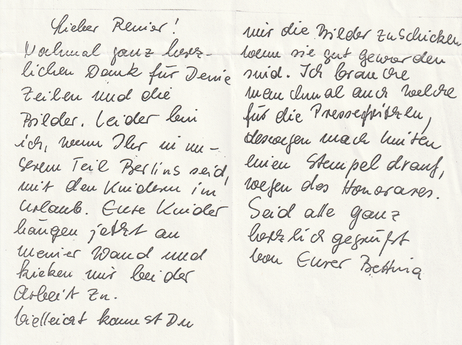 Lieber Renier!
Nochmal ganz herz-
lichen Dank für Deine
Zeilen und die
Bilder. Leider bin
ich, wenn Ihr in un-
serem Teil Berlins seid,
mit den Kindern im
Urlaub. Eure Kinder
hängen jetzt an
meiner Wand und
kieken mir bei der
Arbeit zu.
Vielleicht kannst Du
mir die Bilder zuschicken
wenn sie gut geworden
sind. Ich brauche
manchmal auch welche
für die Pressefritzen,
deswegen mach hinten
einen Stempel drauf,
wegen des Honorares.
Seid alle ganz
herzlich gegrüßt
von Eurer Bettina